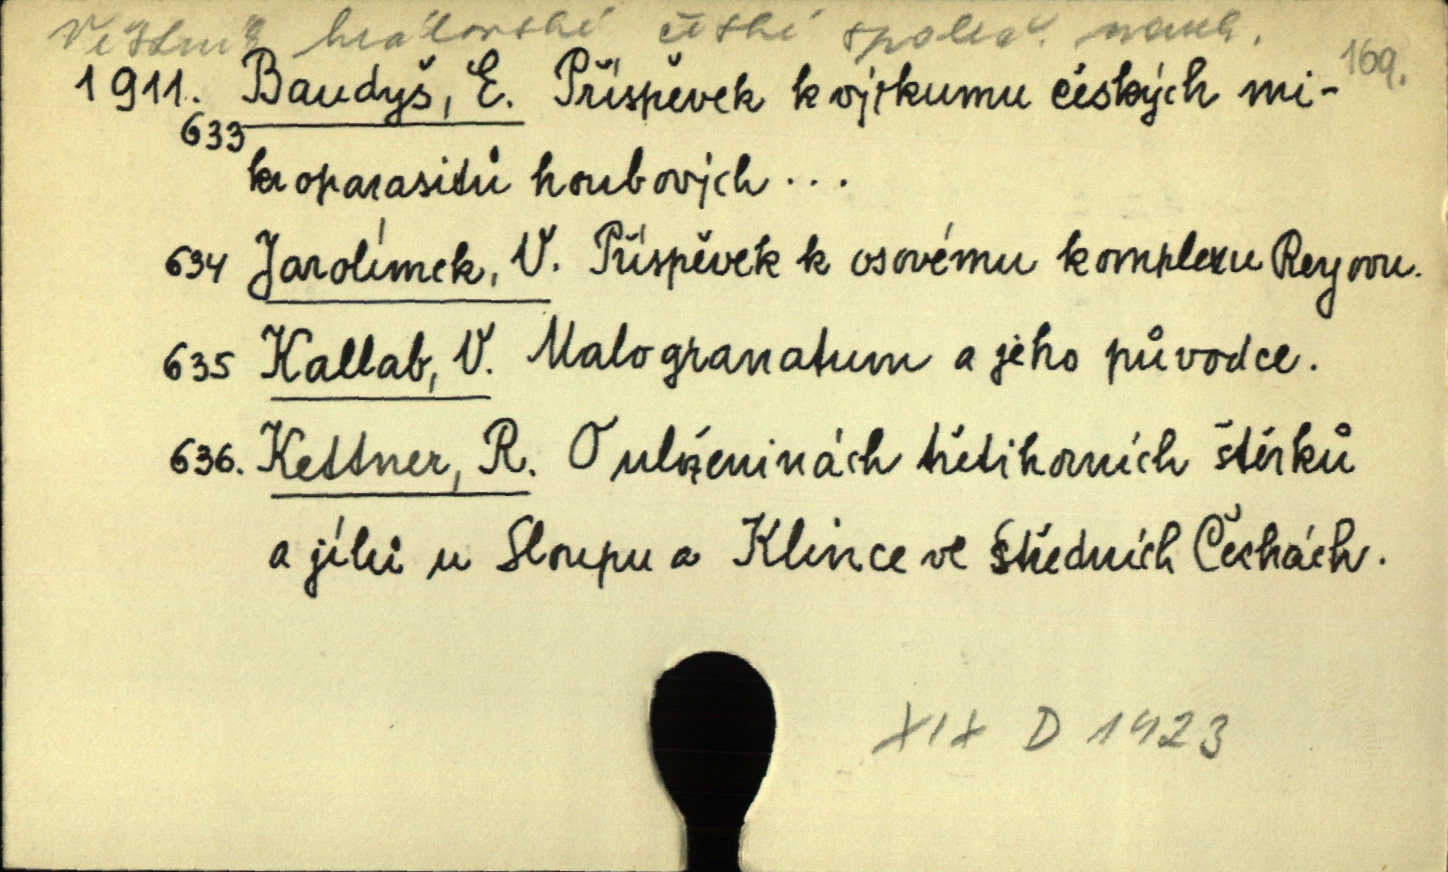 Věstník královské české společ. nauk.
169.
1911. Baudyš, E. Příspěvek k výzkumu českých mi-
633
kroparasitů houbových...
634 Jarolímek, V. Příspěvek k osovému komplexu Reyovu.
635 Kallab, V. Malogranatum a jeho původce.
636. Kettner, R. O uloženinách třetihorních štěrků
a jílů u Sloupu a Klince ve středních Čechách.
XIX D 1423